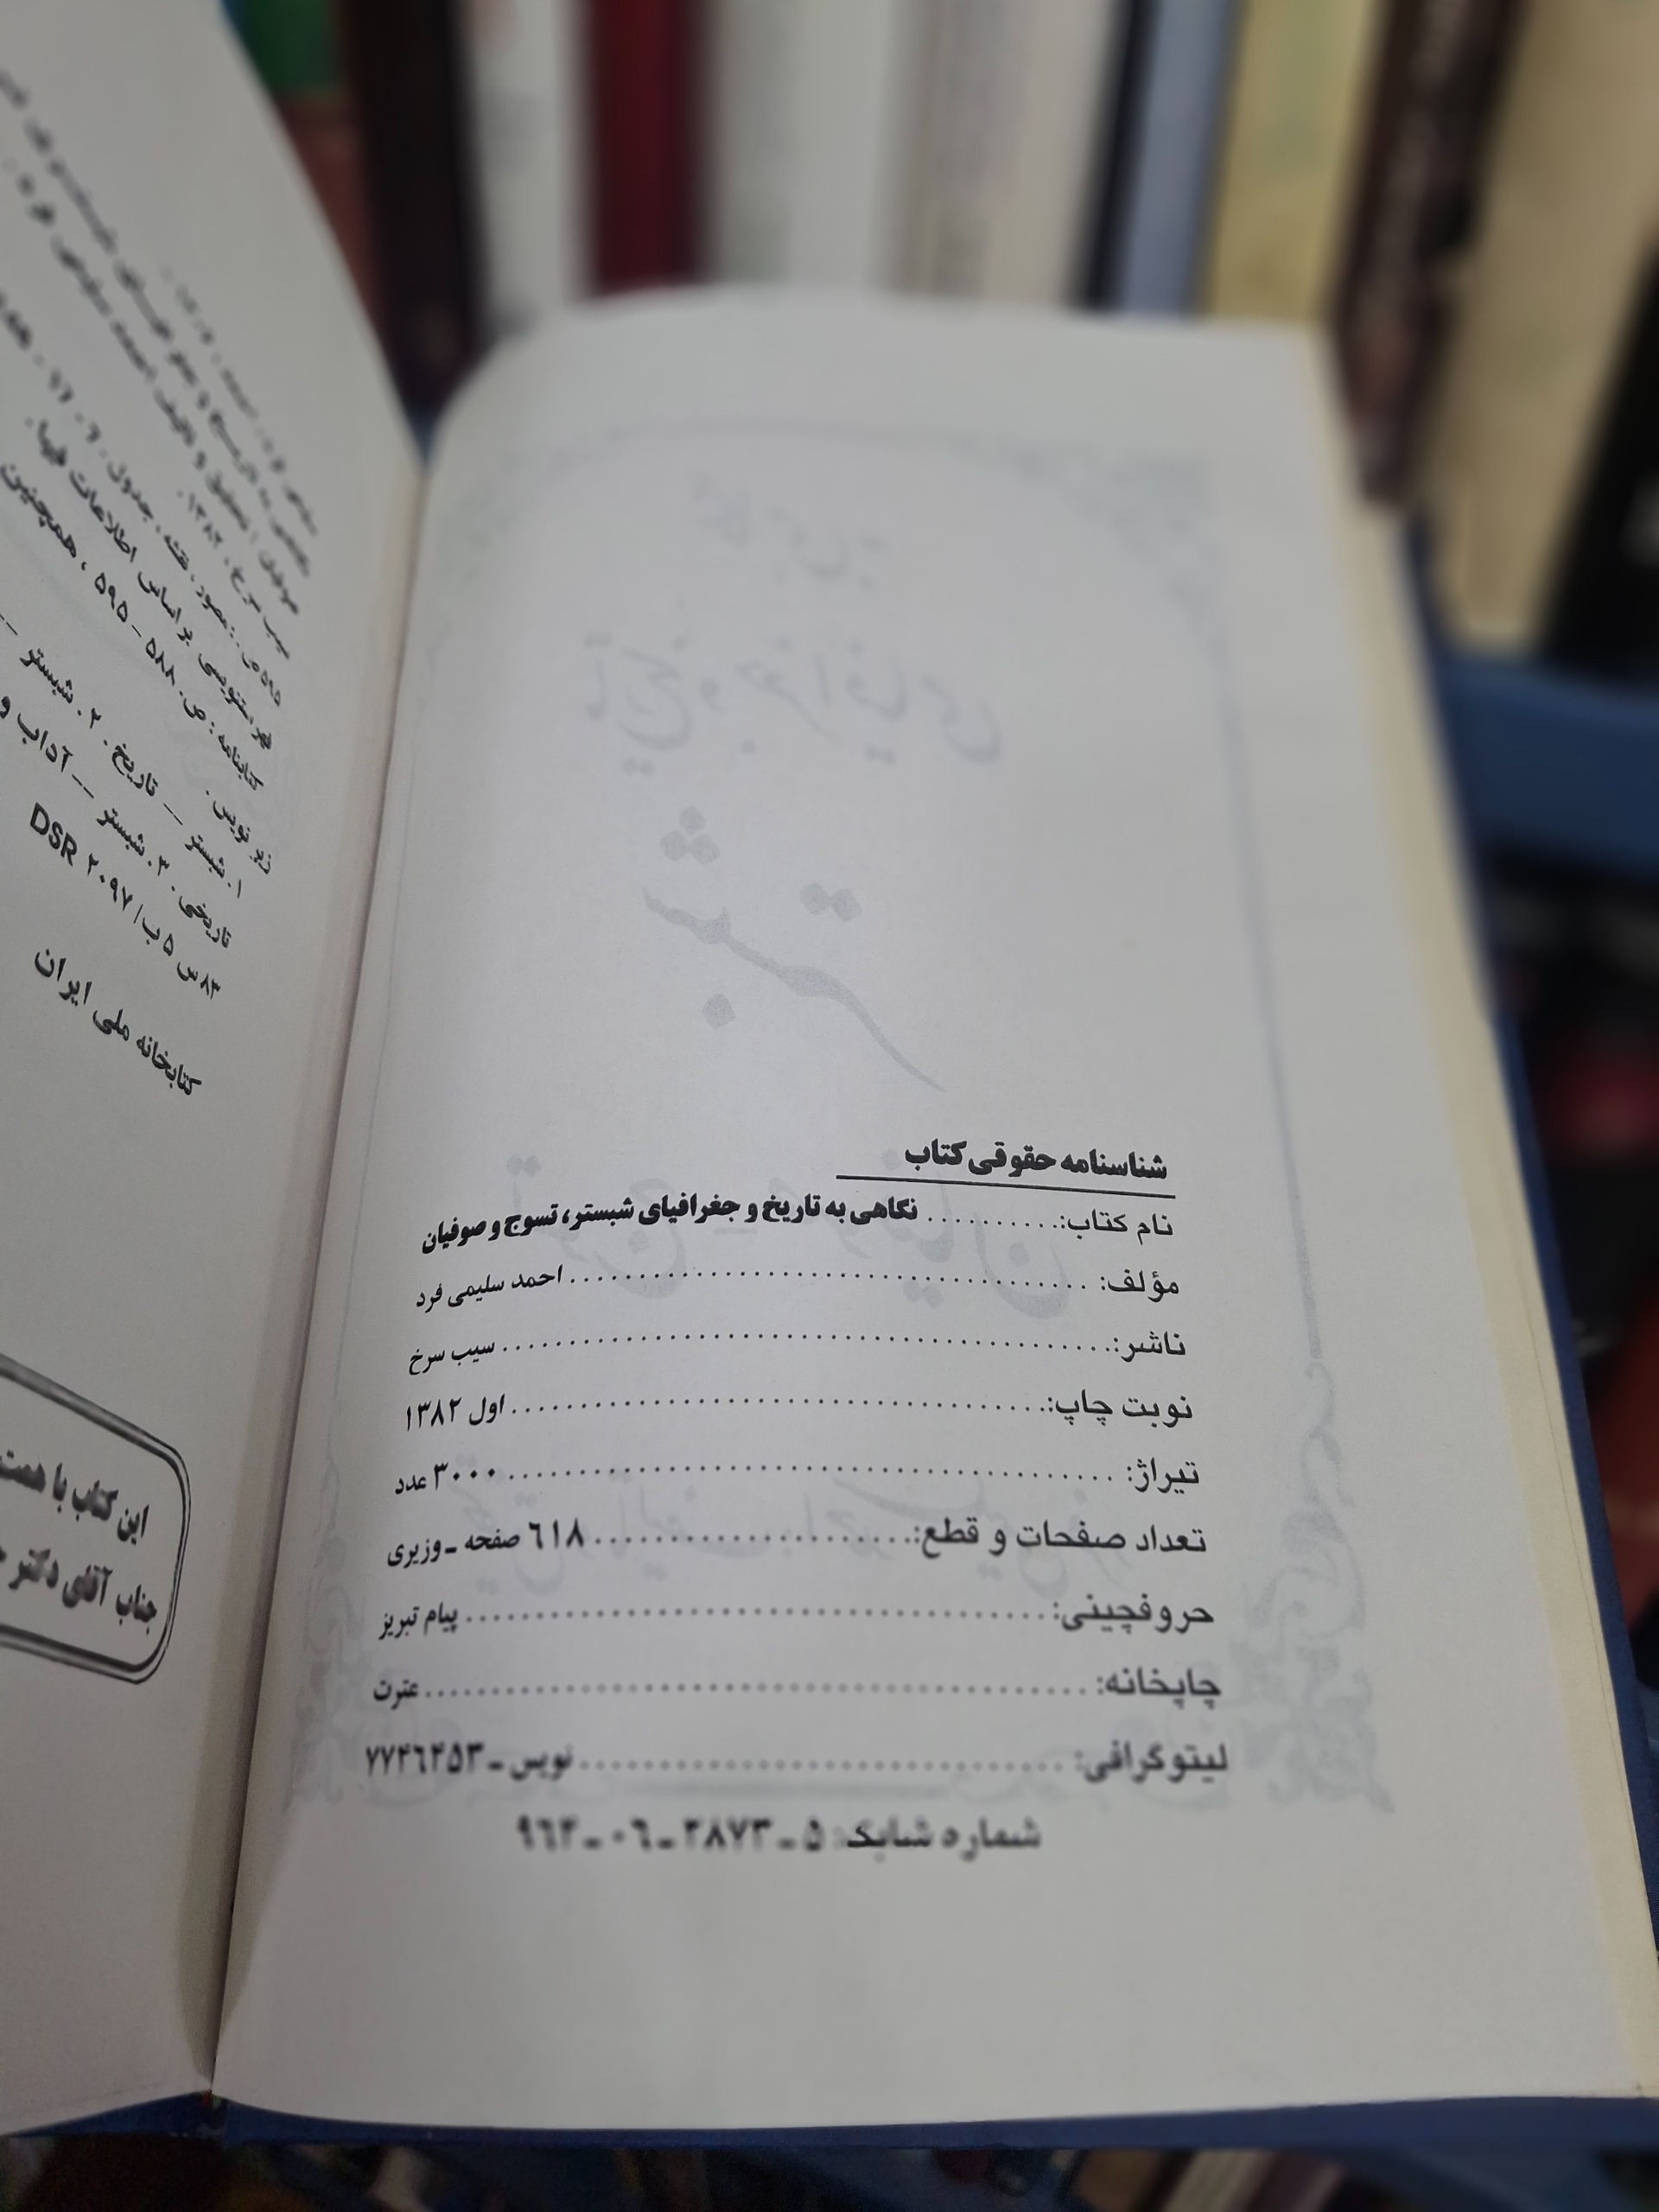 شناسنامه حقوقی کتاب
نام کتاب:.......... نگاهی به تاریخ و جغرافیای شبستر، تسوج و صوفیان
مؤلف: ...................................... احمد سلیمی فرد
ناشر:............................................ سیب سرخ
نوبت چاپ:....................................... اول ۱۳۸۲
تیراژ: ............................................ ۳۰۰۰ عدد
تعداد صفحات و قطع:....................... ۶۱۸ صفحه ـ وزیری
حروفچینی:.......................................... پیام تبریز
چاپخانه: ............................................... عترت
لیتوگرافی: .................................. نویس ـ ۷۷۴۶۲۵۳
شماره شابک: ۵ ـ ۲۸۷۳ ـ ۰۶ ـ ۹۶۴
سیب سرخ، ۱۳۸۲.
۵۹۵ ص.: مصور، نقشه، جدول.
فهرستنویسی براساس اطلاعات فیپا.
کتابنامه: ص. ۵۸۸ - ۵۹۵، همچنین
زیر نویس.
۱. شبستر -- تاریخ. ۲. شبستر --
تاریخی. ۳. شبستر -- آداب و
DSR ۲۰۹۷ / ب ۵ س ۸۳
کتابخانه ملی ایران
این کتاب با همت
جناب آقای دکتر